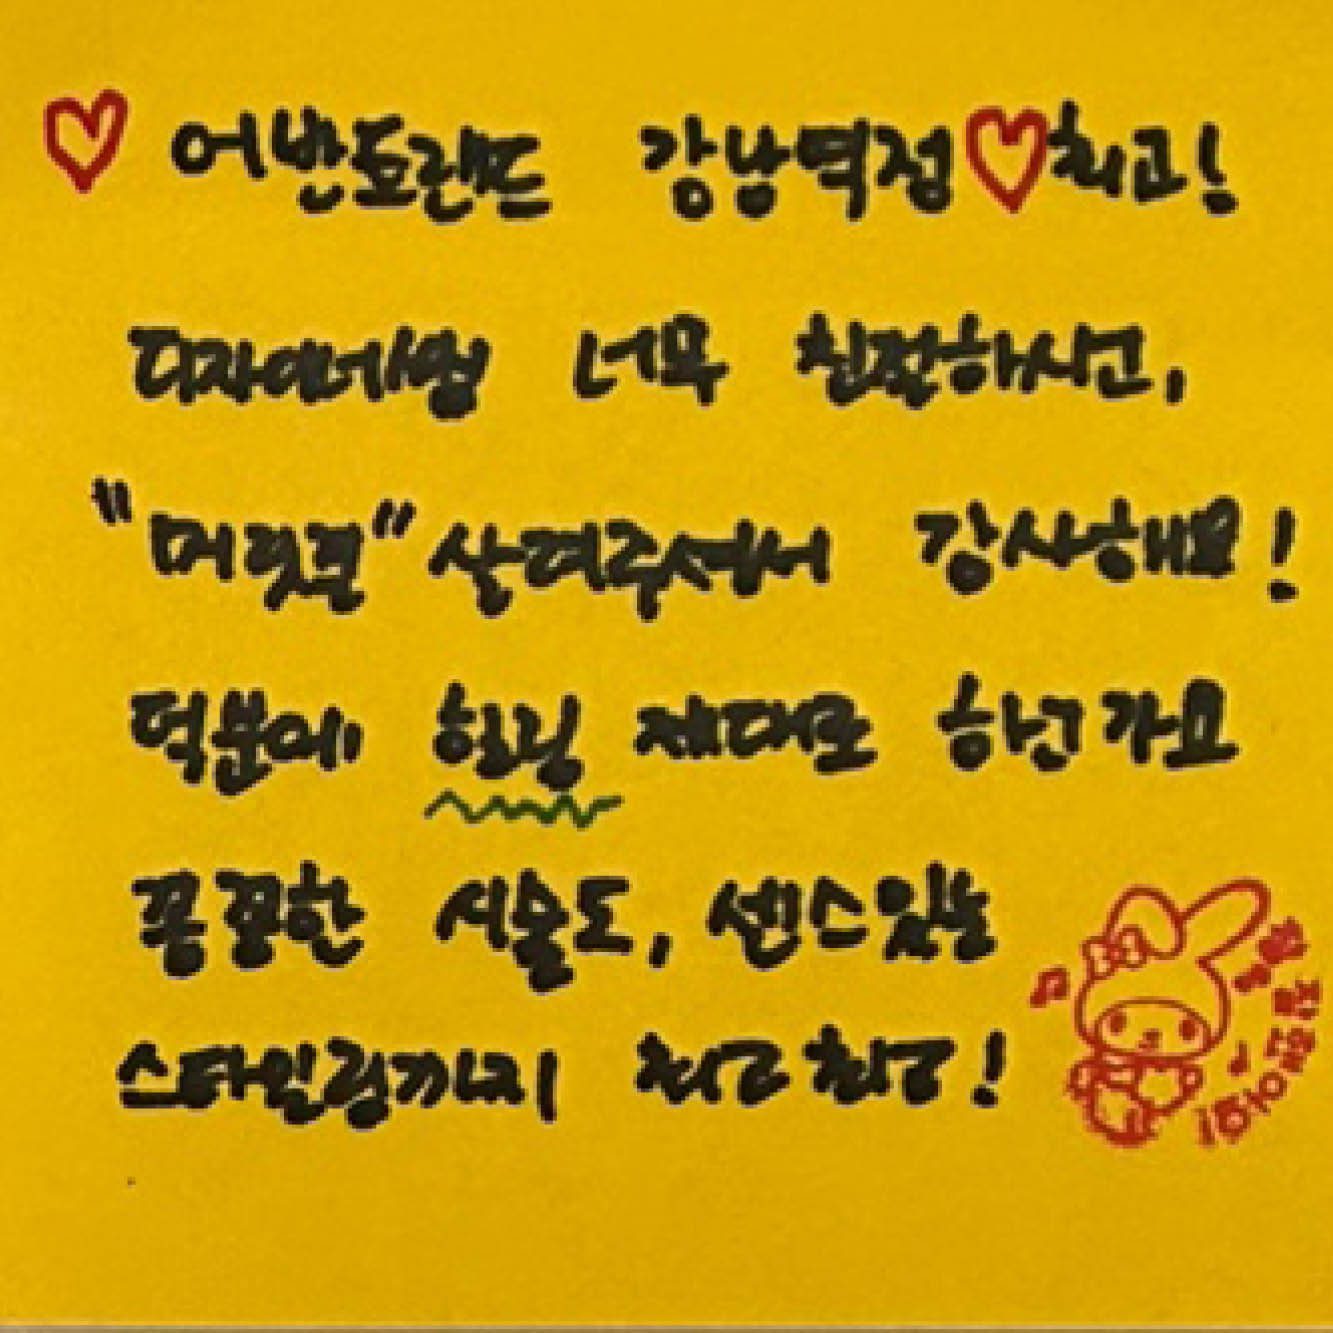 ♡ 어반도랜드 강남역점♡최고!
디자이너쌤 너무 친절하시고,
"머릿결" 살려주셔서 감사해요!
덕분에 힐링 제대로 하고가요
꼼꼼한 시술도, 센스있는
스타일링까지 최고최고!